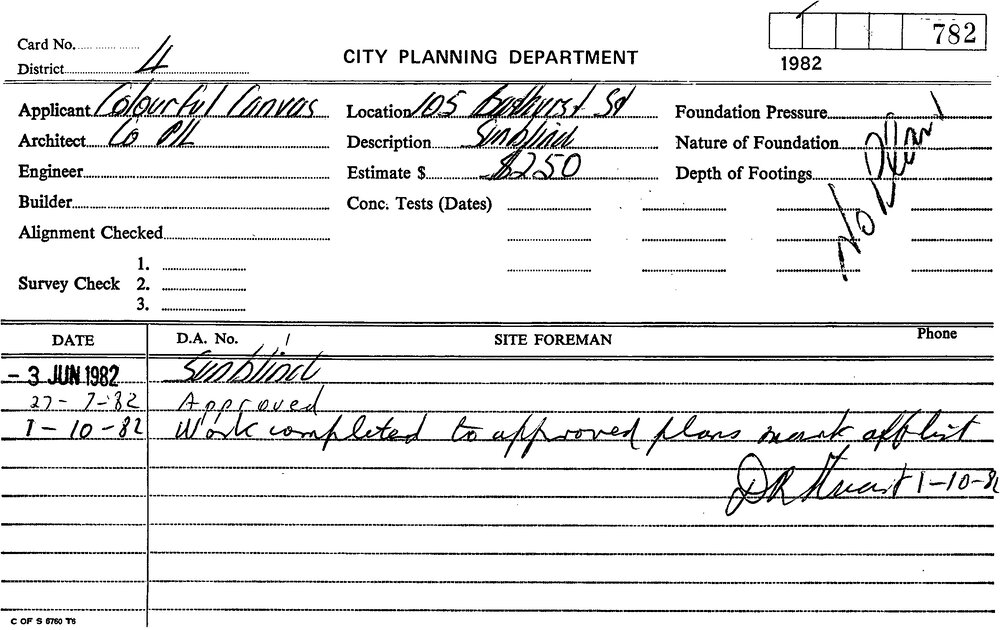 782
Card No.
CITY PLANNING DEPARTMENT
District 4
1982
Applicant Colourful Canvas Location 105 Bathurst St Foundation Pressure
Architect Co P/L Description Sunblind Nature of Foundation
Engineer Estimate $ $250 Depth of Footings
No Plan
Builder Conc. Tests (Dates)
Alignment Checked
1.
Survey Check 2.
3.
DATE D.A. No. SITE FOREMAN Phone
- 3 JUN 1982 Sunblind
27-7-82 Approved
1-10-82 Work completed to approved plans mark off list
1-10-82
C OF S 6760 T6